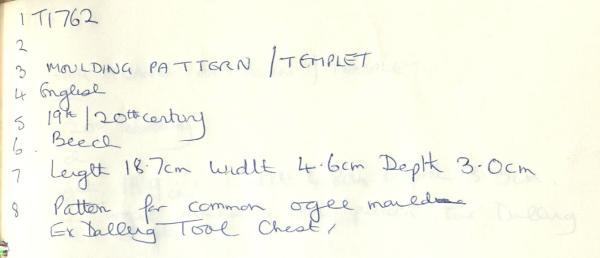 1 T1762
2
3 MOULDING PATTERN / TEMPLET
4 English
5 19th / 20th century
6. Beech
7 Length 18.7cm Width 4.6cm Depth 3.0cm
8 Pattern for common ogee
Ex Dalling Tool Chest,